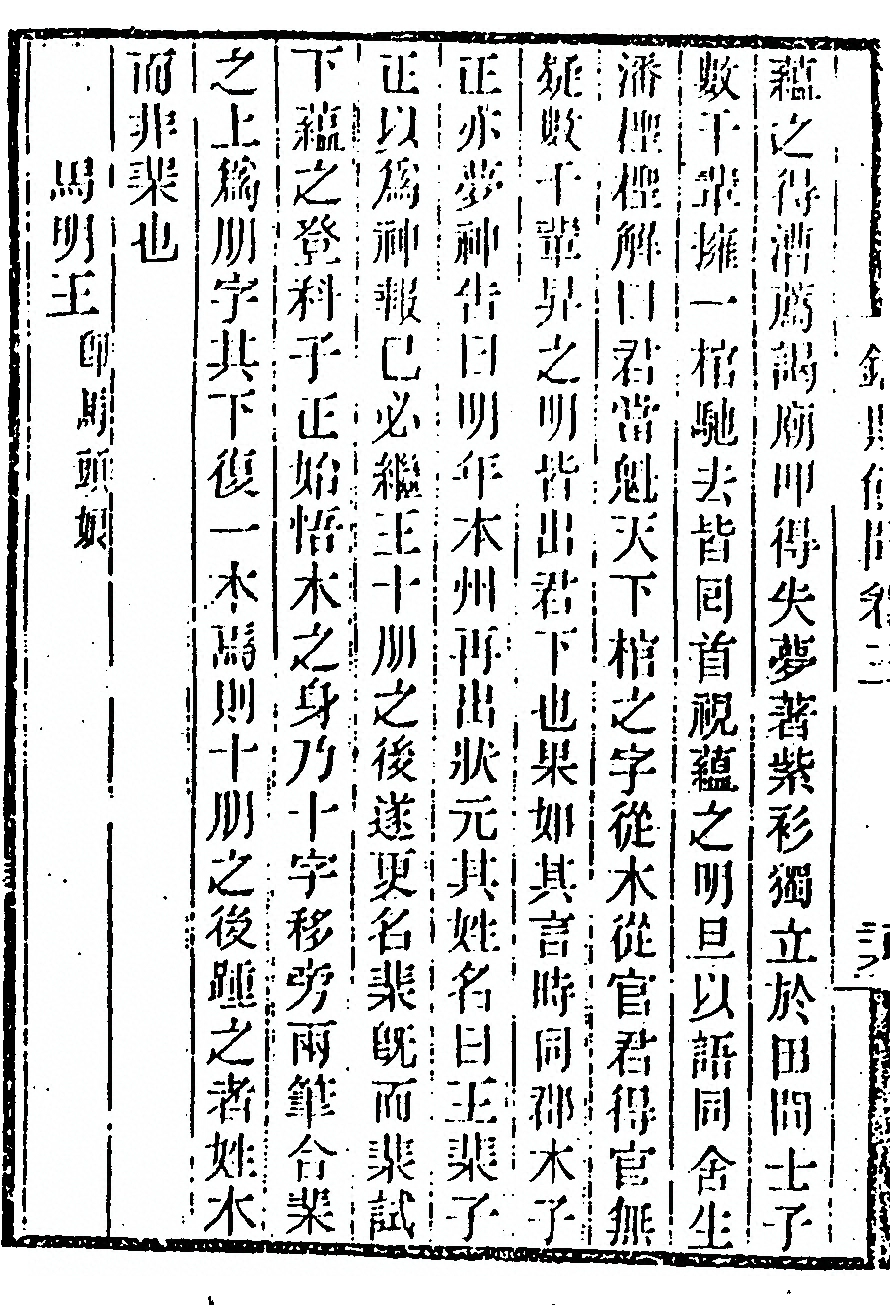 蘊之得漕薦謁廟叩得失夢著紫衫獨立於田間士子
數千輩擁一棺馳去皆回首視蘊之明旦以語同舍生
潘檉檉解曰君當魁天下棺之字從木從官君得官無
疑數千輩舁之明皆出君下也果如其言時同郡木子
正亦夢神告曰明年本州再出狀元其姓名曰王棐子
正以爲神報已必繼王十朋之後遂更名棐旣而棐試
下蘊之登科子正始悟木之身乃十字移旁兩筆合棐
之上爲朋字其下復一木焉則十朋之後踵之者姓木
而非棐也
馬明王 卽馬頭娘